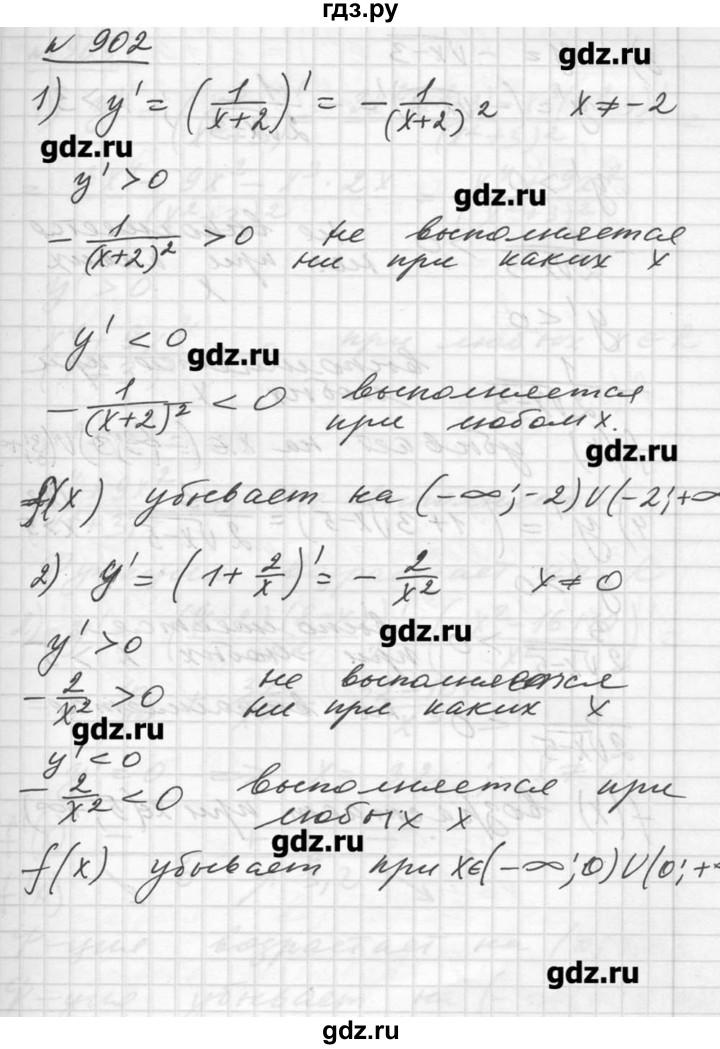 гдз.ру
№ 902
gdz.ru
1) y' = (1/(x+2))' = - 1/(x+2)² x ≠ -2
gdz.ru
y' > 0
gdz.ru
- 1/(x+2)² > 0 не выполняется
ни при каких x
y' < 0
gdz.ru
- 1/(x+2)² < 0 выполняется
при любом x.
gdz.ru
f(x) убывает на (-∞; -2) ∪ (-2; +∞
2) y' = (1 + 2/x)' = - 2/x² x ≠ 0
gdz.ru
y' > 0
- 2/x² > 0 не выполняется
ни при каких x
gdz.ru
y' < 0
- 2/x² < 0 выполняется при
любых x
gdz.ru
f(x) убывает при x∈(-∞; 0) ∪ (0; +∞
gdz.ru
gdz.ru